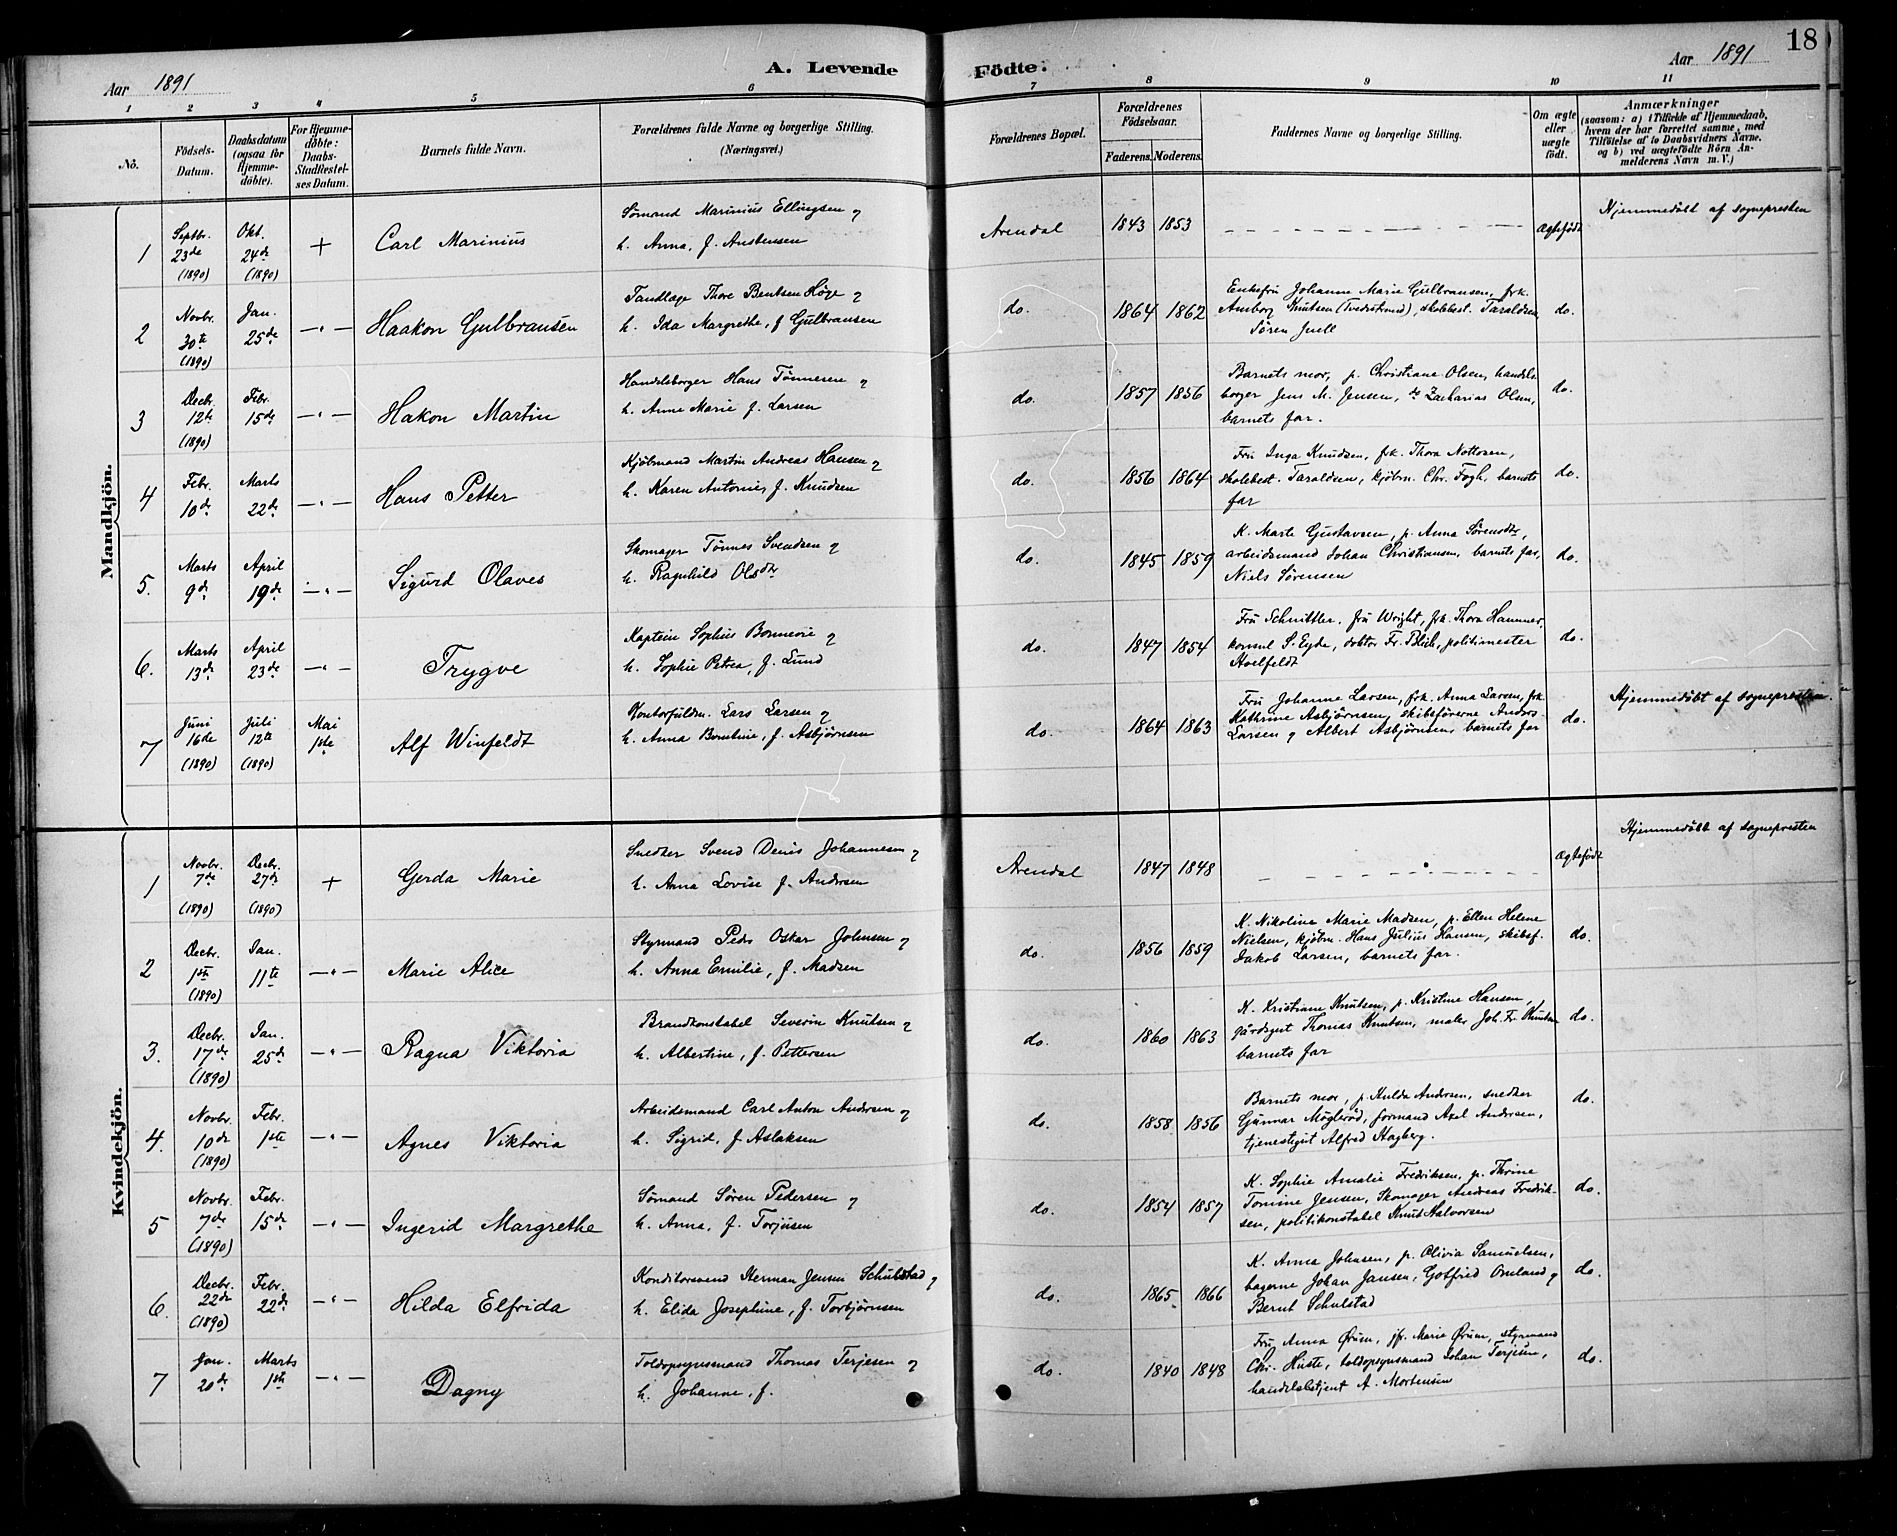 Aar 1891
A. Levende
Födte.
Aar 1891
18
1 2 3 4 5 6 7 8 9 10 11
No.
Födsels-
Datum.
Daabsdatum
(ogsaa for
Hjemme-
döbte).
For Hjemme-
döbte:
Daabs-
Stadfestel-
ses Datum.
Barnets fulde Navn.
Forældrenes fulde Navne og borgerlige Stilling.
(Næringsvei.)
Forældrenes Bopæl.
Forældrenes
Födselsaar.
Faderens. Moderens.
Faddernes Navne og borgerlige Stilling.
Om ægte
eller
uægte
födt.
Anmærkninger
(saasom: a) i Tilfælde af Hjemmedaab,
hvem der har forrettet samme, med
Tilföielse af to Daabsvidners Navne.
og b) ved uægtefödte Börn An-
melderens Navn m. V.)
Mandkjön.
1
Septbr.
23de
(1890)
Okt.
24de
(1890)
+
Carl Marinius
Sømand Marinius Ellingsen og
h. Anna, f. Austensen
Arendal
1843 1853
Ægtefødt
Hjemmedøbt af sognepresten
2
Novbr.
30te
(1890)
Jan.
25de
—"—
Haakon Gulbransen
Tandlæge Thore Bentsen Høge og
h. Ida Margrethe, f Gulbransen
do.
1864 1862
Enkefru Johanne Marie Gulbransen, frk.
Amborg Knutsen (Tvedestrand), skolebest. Taraldsen,
Sören Juell
do.
3
Decbr.
12te
(1890)
Febr.
15de
—"—
Hakon Martin
Handelsborger Hans Tønnesen og
h. Anne Marie f. Larsen
do.
1857 1856
Barnets mor, p. Christiane Olsen, handels-
borger Jens M. Jensen, do Zacharias Olsen,
barnets far.
do.
4
Febr.
10de
Marts
22de
—"—
Hans Petter
Kjøbmand Martin Andreas Hansen og
h. Karen Antonie, f. Knudsen
do.
1856 1864
Fru Inga Knudsen, frk. Thora Nottosen,
skolebest. Taraldsen, kjøbm. Chr. Fogh, barnets
far
do.
5.
Marts
9de
April
19de
—"—
Sigurd Olaves
Skomager Tønnes Svendsen og
h. Ragnhild Olsdtr
do.
1845 1859
K. Marte Gustavsen, p. Anna Sørensdtr,
arbeidsmand Johan Christiansen, barnets far,
Niels Sørensen
do.
6.
Marts
13de
April
23de
—"—
Trygve
Kaptein Sophus Bonnevie og
h. Sophie Petrea, f. Lund
do.
1847 1854
Fru Schnitler, fru Wright, frk. Thora Hammer,
konsul S. Eyde, doktor Fr. Blich, politimester
Hvelfeldt
do.
7
Juni
16de
(1890)
Juli
12te
(1890)
Mai
1ste
Alf Winfeldt
Kontorfuldm. Lars Larsen og
h. Anna Berntine, f. Asbjørnsen
do.
1864 1863
Fru Johanne Larsen, frk. Anna Larsen, frk.
Kathrine Asbjørnsen, skibsførerne Anders
Larsen og Albert Asbjørnsen, barnets far
do.
Hjemmedøbt af sognepresten.
Kvindekjön.
1
Novbr.
7de
(1890)
Decbr.
27de
(1890)
+
Gerda Marie
Snedker Svend Denis Johannesen og
h. Anna Lovise f. Andersen
Arendal
1847 1848
Ægtefødt
Hjemmedøbt af sognepresten
2
Decbr.
1ste
(1890)
Jan.
11te
—"—
Marie Alice
Styrmand Peder Oskar Johnsen og
h. Anna Emilie, f. Madsen
do.
1856 1859
K. Nikoline Marie Madsen, p. Ellen Helene
Nielsen, kjøbm. Hans Julius Hansen, skibsf.
Jakob Larsen, barnets far.
do.
3.
Decbr.
17de
(1890)
Jan.
25de
—"—
Ragna Viktoria
Brandkonstabel Severin Knutsen og
h. Albertine, f. Pettersen
do.
1860 1863
K. Kristiane Knutsen, p. Kristine Hansen,
gårdsgut Thomas Knutsen, maler Joh. Fr. Knutsen
barnets far
do.
4.
Novbr.
10de
(1890)
Febr.
1ste
—"—
Agnes Viktoria
Arbeidsmand Carl Anton Andersen og
h. Sigrid, f Aslaksen
do.
1858 1856
Barnets mor, p. Hulda Andersen, snedker
Gunnar Møglerød, formand Axel Andersen,
tjenestegut Alfred Hagberg.
do.
5
Novbr.
7de
(1890)
Febr.
15de
—"—
Ingerid Margrethe
Sømand Søren Pedersen og
h. Anna, f. Torjusen
do.
1854 1857
K. Sophie Amalie Fredriksen, p. Thrine
Tomine Jensen, Skomager Andreas Fredrik-
sen, politikonstabel Knut Halvorsen
do.
6.
Decbr.
22de
(1890)
Febr.
22de
—"—
Hilda Elfrida
Konditorsvend Herman Jensen Schulstad og
h. Elida Josephine, f. Torbjørnsen
do.
1865 1866
K. Anna Johnsen, p. Olivia Samuelsen,
bagerne Johan Jansen, Gotfried Omland og
Bernt Schulstad
do.
7
Jan.
20de
Marts
1ste
—"—
Dagny
Toldopsynsmand Thomas Terjesen og
h. Johanne, f.
do.
1840 1848
Fru Anna Ørum, jfr. Marie Ørum, styrmand
Chr. Huste, toldopsynsmand Johan Terjesen,
handelsbetjent A. Mortensen
do.